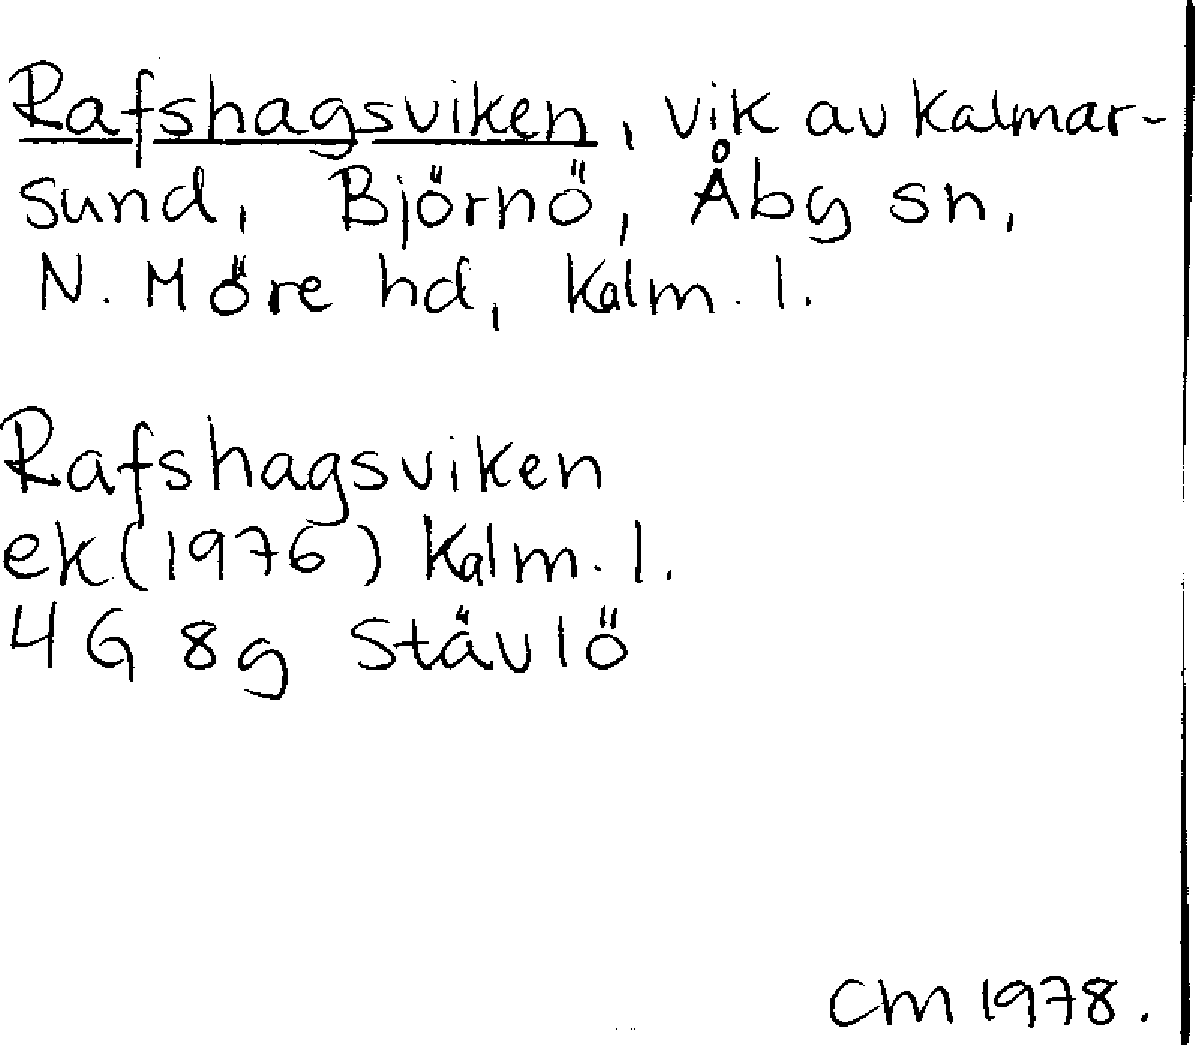 Rafshagsviken, vik av Kalmar-
sund, Björnö, Åby sn,
N. Möre hd, Kalm. l.
Rafshagsviken
ek (1976) Kalm. l.
4 G 8g Stävlö
CM 1978.